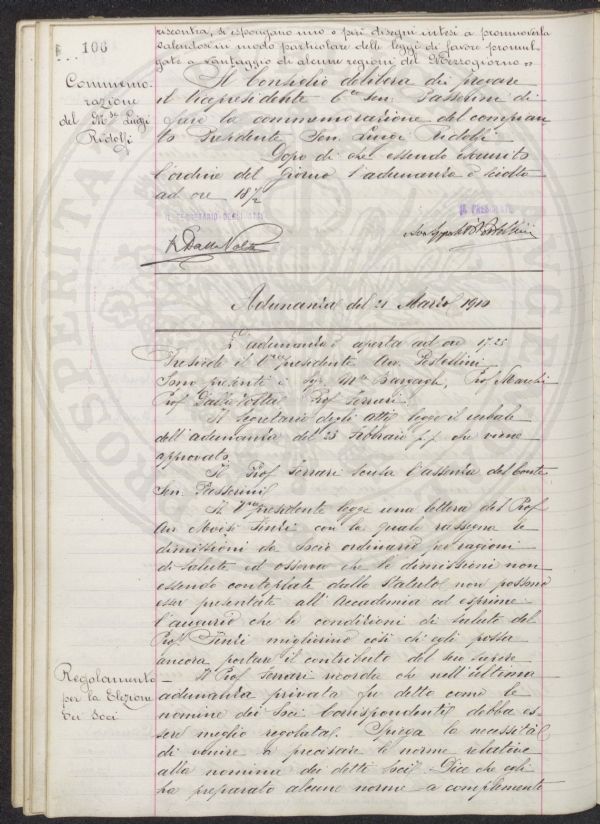 106
riscontra, si espongano uno o più disegni intesi a promuoverla
valendosi in modo particolare delle leggi di favore promul-
gate a vantaggio di alcune regioni del Mezzogiorno »
Commemo-
razione
del Mse Luigi
Ridolfi
Il Consiglio delibera di pregare
il Vicepresidente Cte Sen. Passerini di
fare la commemorazione del compian
to Presidente Sen. Luigi Ridolfi
Dopo di che essendo esaurito
l'ordine del giorno l'adunanza è sciolta
ad ore 18 1/2
IL SEGRETARIO DEGLI ATTI
IL PRESIDENTE
Dalla Volta
Adunanza del 21 Marzo 1910
L'adunanza è aperta ad ore 17.25
Presiede il Vice presidente Avv. Pestellini
Sono presenti i Sigg. Mse Bargagli, Prof. Marchi
Prof Dalla Volta Prof Ferrari
Il Segretario degli atti legge il verbale
dell'adunanza del 25 Febbraio p.p. che viene
approvato
Il Prof Ferrari scusa l'assenza del Conte
Sen. Passerini
Il Vice presidente legge una lettera del Prof
Avv Moisè Finzi con la quale rassegna le
dimissioni da Socio ordinario per ragioni
di salute ed osserva che le dimissioni non
essendo contemplate dallo Statuto non possono
esser presentate all'Accademia ed esprime
l'augurio che le condizioni di salute del
Prof. Finzi migliorino così ch'egli possa
ancora portare il contributo del suo sapere
Regolamento
per la Elezione
dei Soci
Il Prof Ferrari ricorda che nell'ultima
adunanza privata fu detto come le
nomine dei Soci Corrispondenti debba es-
sere meglio regolata. Spiega la necessità
di venire a precisare le norme relative
alla nomina dei detti Soci. Dice che egli
ha preparato alcune norme a complemento
PROSPERITÀ